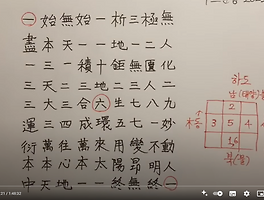 一始無始一析三極無
盡本天一一地一二人
一三一積十鉅無匱化
三天二三地二三人二
三大三合六生七八九
運三四成環五七一妙
衍萬往萬來用變不動
本本心本太陽昂明人
中天地一一終無終一
하도
2
3 5 4
1 6